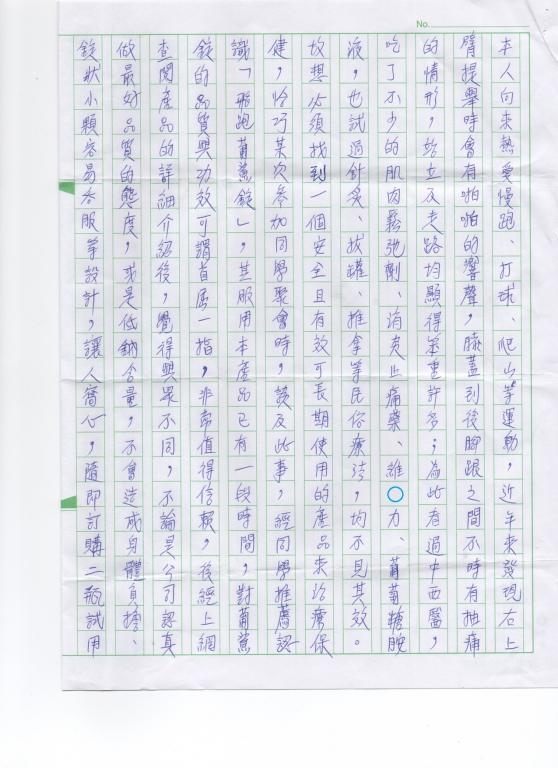 No.
本人向來熱愛慢跑、打球、爬山等運動，近年來發現右上
臂提舉時會有啪啪的響聲，膝蓋到後腳跟之間不時有抽痛
的情形，站立及走路均顯得笨重許多；為此看過中西醫，
吃了不少的肌肉鬆弛劑、消炎止痛藥、維○力、葡萄糖胺
液，也試過針灸、拔罐、推拿等民俗療法，均不見其效。
故想必須找到一個安全且有效可長期使用的產品來治療保
健，恰巧某次參加同學聚會時，談及此事，經同學推薦認
識「飛跑葡鯊錠」，其服用本產品已有一段時間，對葡鯊
錠的品質與功效可謂首屈一指，非常值得信賴，後經上網
查閱產品的詳細介紹後，覺得與眾不同，不論是公司認真
做最好品質的態度，或是低鈉含量，不會造成身體負擔、
錠狀小顆容易吞服等設計，讓人窩心，隨即訂購二瓶試用